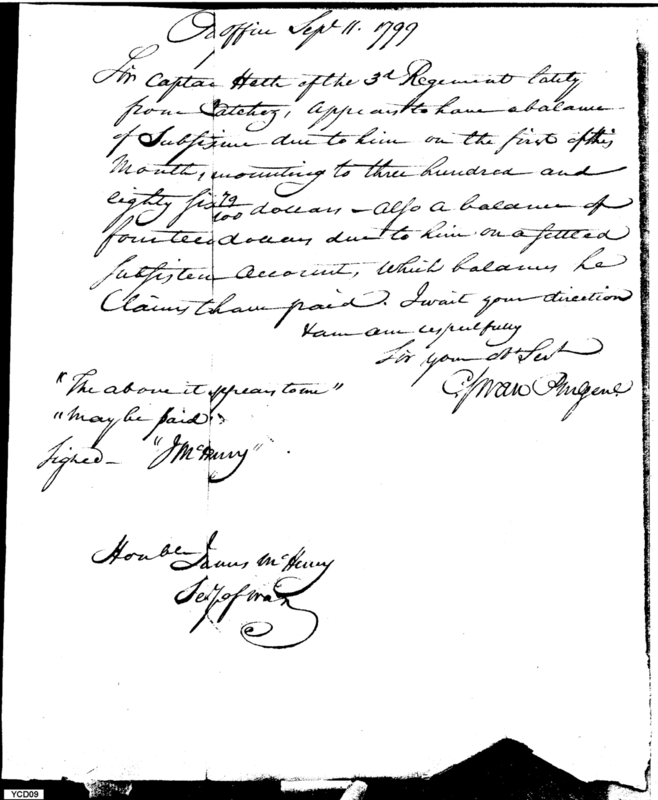 Pm office Sept 11. 1799
Sir Captan Heth of the 3d Regement lately
from Natchez, appears to have a balance
of Subsistence due to him on the first of this
Month, amounting to three hundred and
eighty six 79/100 dollars – also a balance of
fourteen dollars due to him on a settled
Subsistence Account, which balances he
Claims to have paid. I wait your direction
I am respectfully
Sir your obt Servt
C Swan Pmgenl
"The above it appears to me"
"may be paid"
signed – "J McHenry"
Honble James McHenry
Secy of war
YCD09